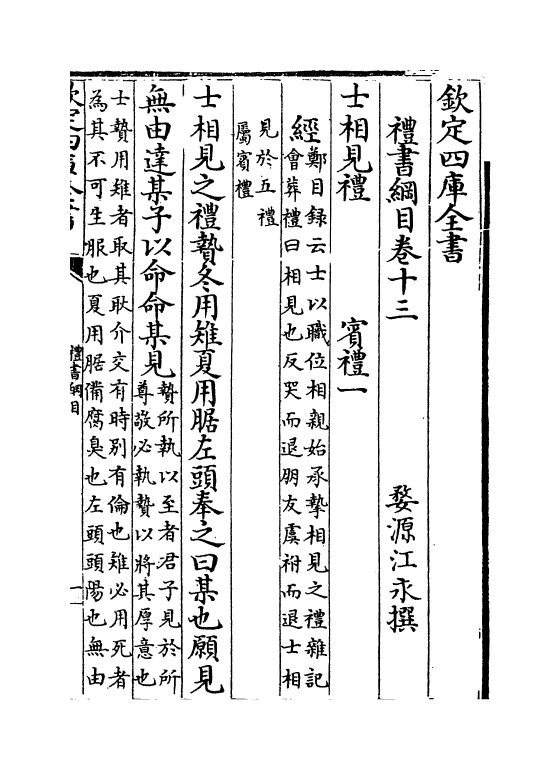 欽定四庫全書
禮書綱目卷十三
婺源江永撰
士相見禮
賓禮一
經鄭目録云士以職位相親始承摯相見之禮雜記
會葬禮曰相見也反哭而退朋友虞祔而退士相
見於五禮
屬賓禮
士相見之禮贄冬用雉夏用腒左頭奉之曰某也願見
無由達某子以命命某見贄所執以至者君子見於所
尊敬必執贄以將其厚意也
士贄用雉者取其耿介交有時别有倫也雉必用死者
為其不可生服也夏用腒備腐臭也左頭頭陽也無由
欽定四庫全書
禮書綱目
一